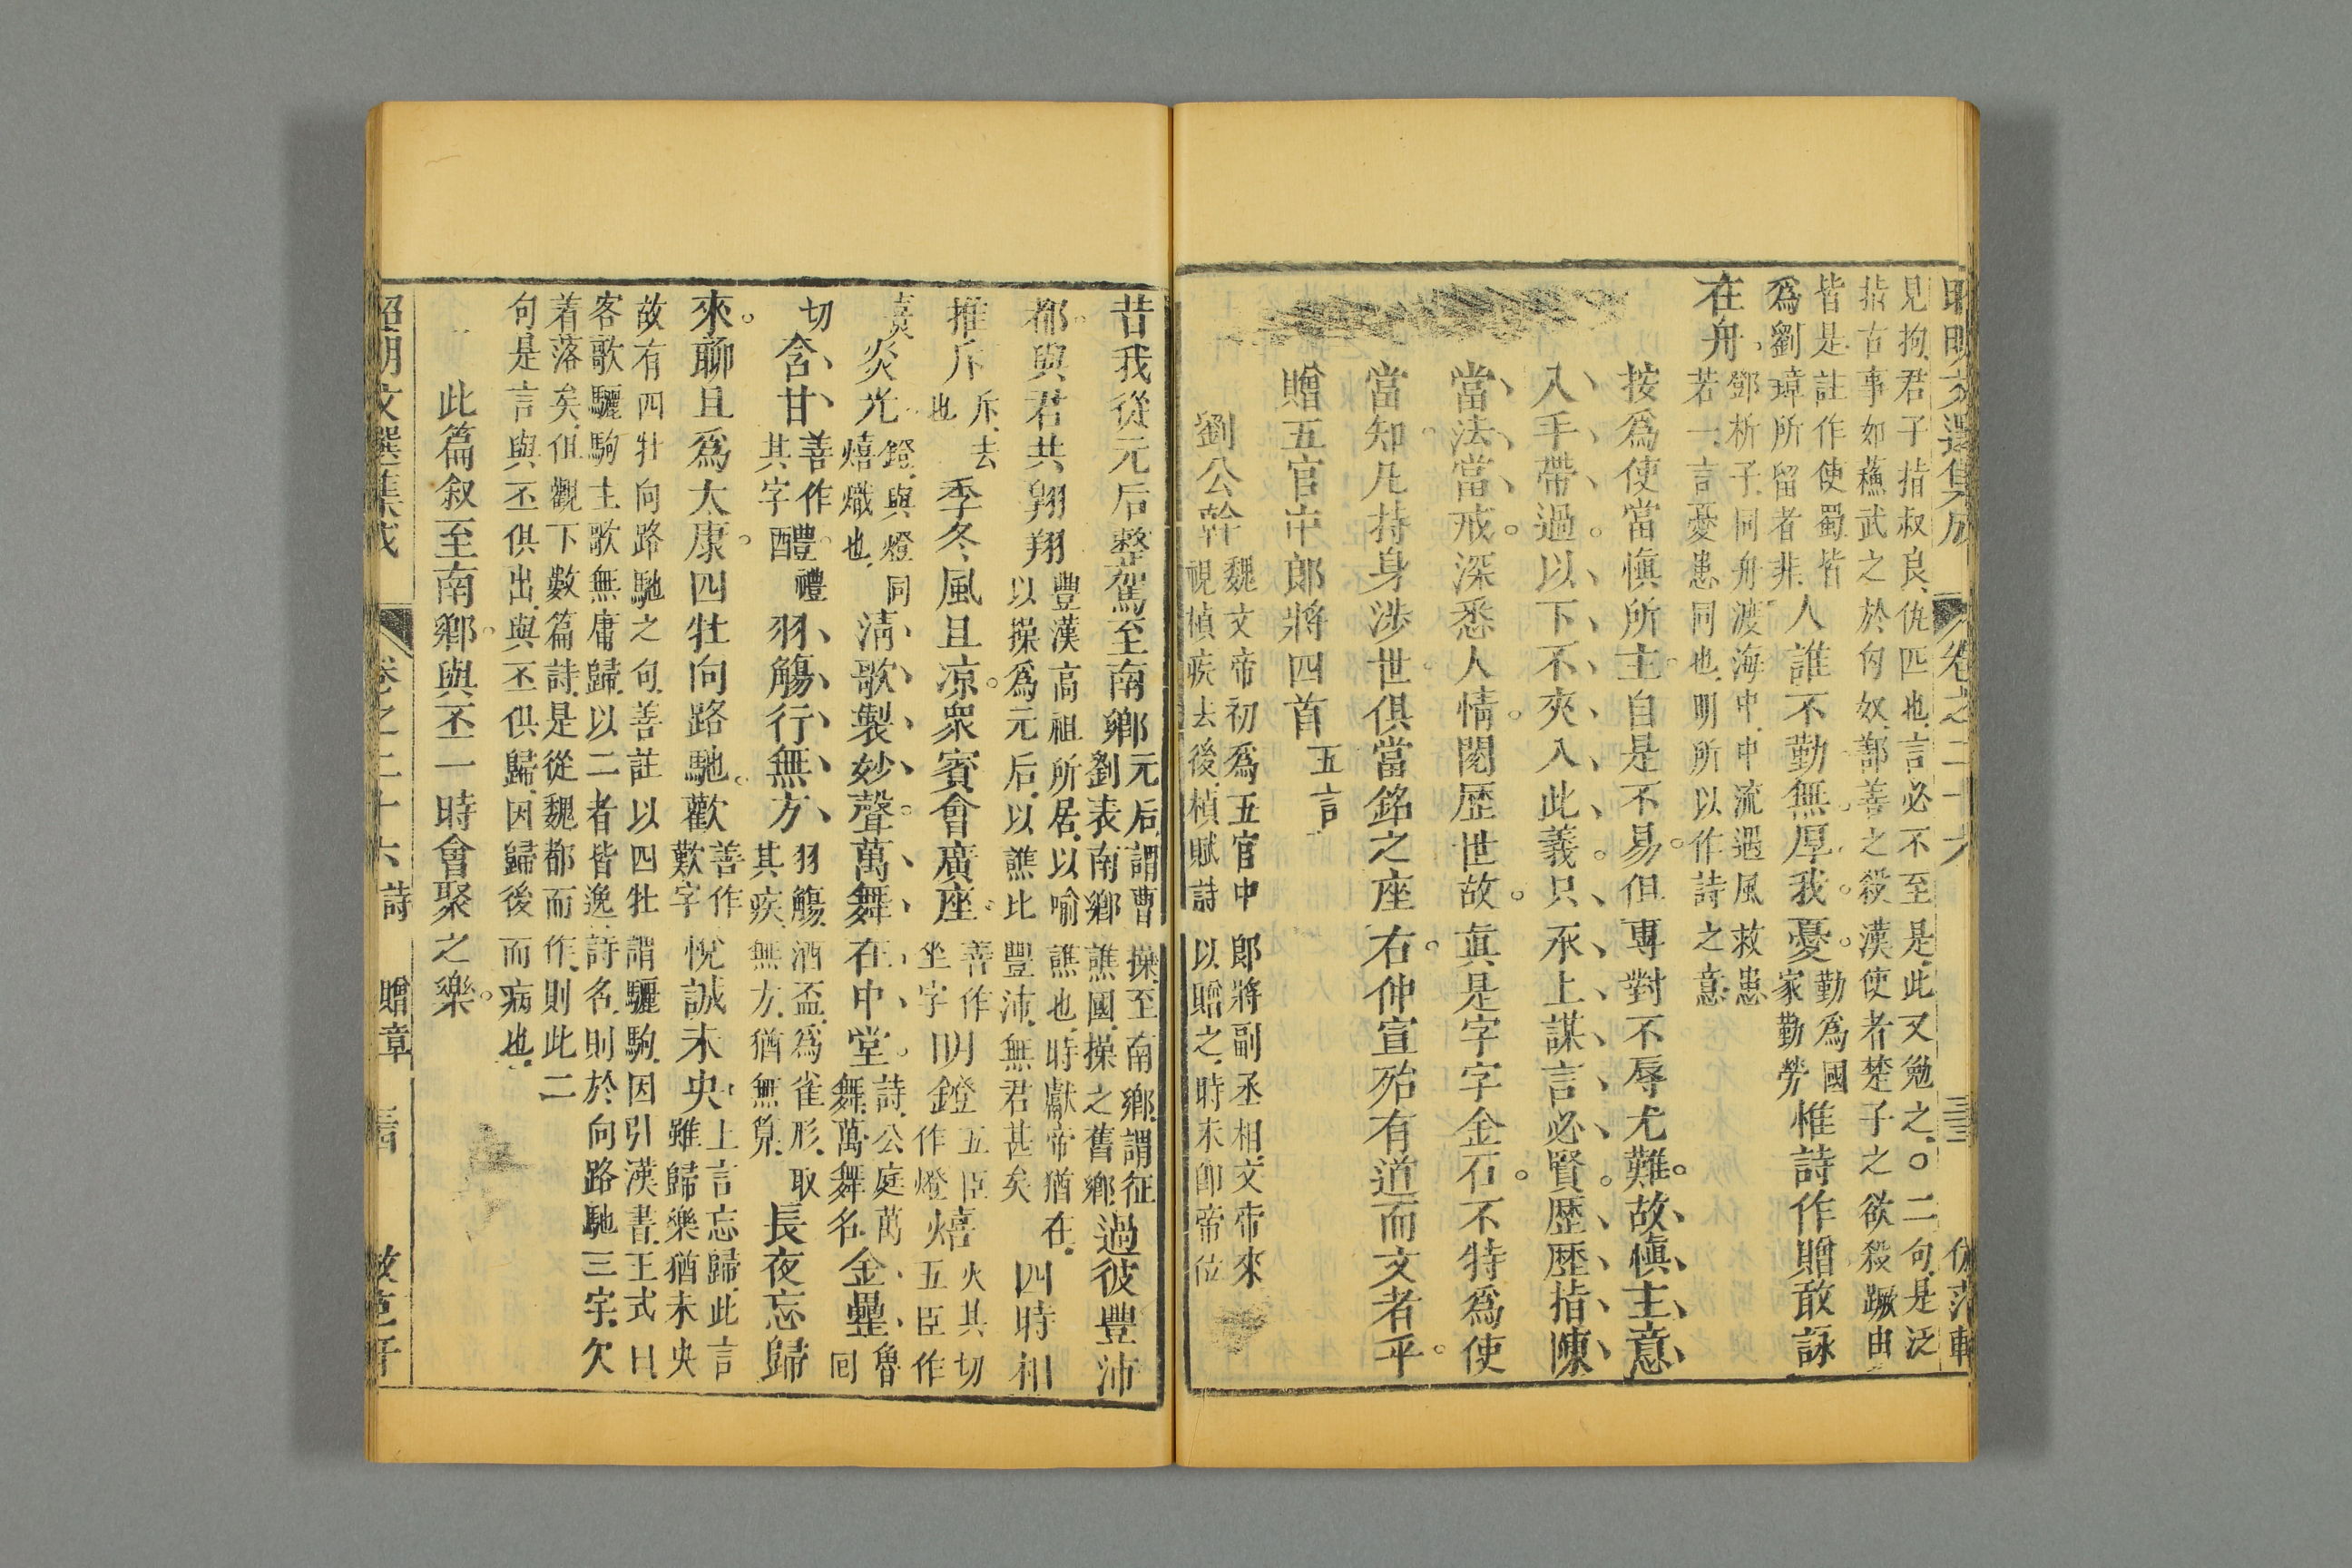 昭明文選集成 卷之二十六 三三 倣范軒
見拘君子指叔良仇匹也言必不至是此又勉之○二句是泛
指古事如蘓武之於匈奴鄯善之殺漢使者楚子之欲殺蹶由
皆是註作使蜀皆
爲劉璋所留者非人誰不勤無厚我憂勤爲國
家勤勞惟詩作贈敢詠
在舟鄧析子同舟渡海中中流遇風救患
若一言憂患同也明所以作詩之意
按爲使當慎所主自是不易但專對不辱尤難故慎主意
入手帶過以下不夾入此義只承上謀言必賢歷歷指陳
當法當戒深悉人情閱歷世故眞是字字金石不特爲使
當知凡持身涉世俱當銘之座右仲宣殆有道而文者乎
贈五官中郎將四首五言
劉公幹魏文帝初爲五官中郎將副丞相文帝來
視楨疾去後楨賦詩以贈之時未卽帝位
昔我從元后整駕至南鄉元后謂曹操至南鄉謂征
劉表南鄉譙國操之舊鄉過彼豐沛
都與君共翱翔豐漢高祖所居以喻譙也時獻帝猶在
以操爲元后以譙比豐沛無君甚矣四時相
推斥斥去
也季冬風且凉衆賓會廣座善作
坐字明鐙五臣
作燈熺火其切
五臣作
熹炎光鐙與燈同
熺熾也淸歌製妙聲萬舞在中堂詩公庭萬
舞萬舞名金罍魯囘
切含甘善作
其字醴禮羽觴行無方羽觴酒盃爲雀形取
其疾無方猶無筭長夜忘歸
來聊且爲太康四牡向路馳歡善作
歎字悅誠未央上言忘歸此言
雖歸樂猶未央
故有四牡向路馳之句善註以四牡謂驪駒因引漢書王式曰
客歌驪駒主歌無庸歸以二者皆逸詩名則於向路馳三字欠
着落矣但觀下數篇詩是從魏都而作則此二
句是言與丕俱出與丕俱歸因歸後而病也
此篇叙至南鄉與丕一時會聚之樂
昭明文選集成 卷之二十六 詩 贈章 倣范軒